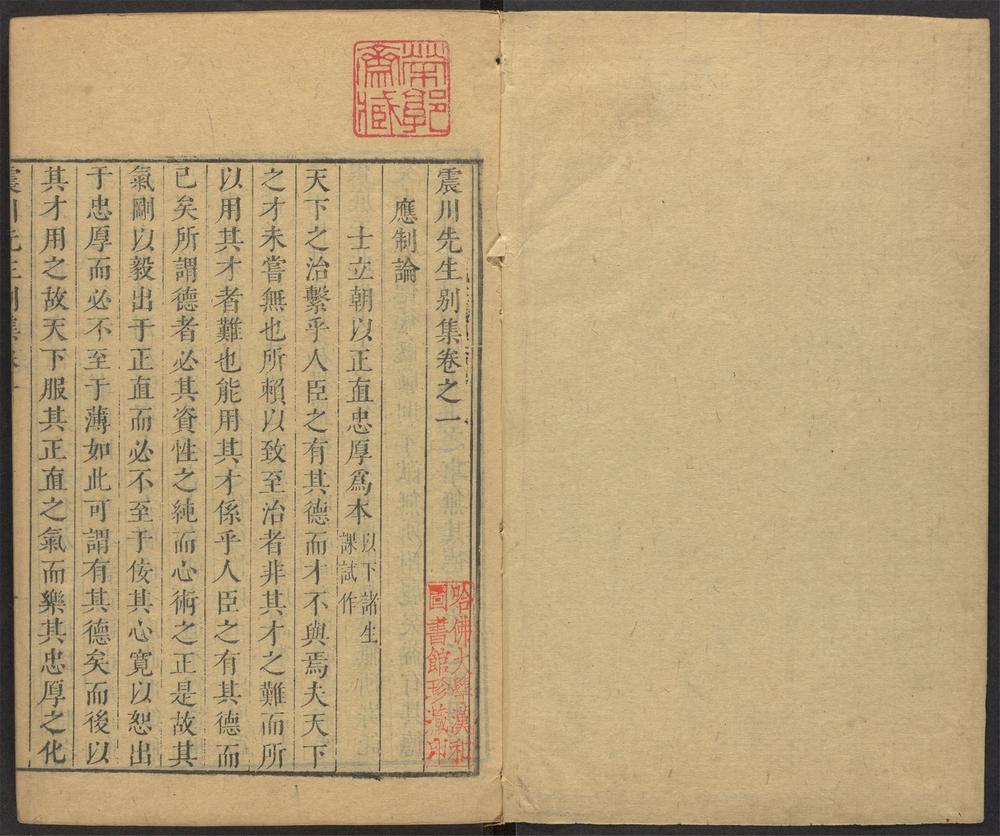 震川先生別集卷之一
應制論
士立朝以正直忠厚爲本
以下諸生
課試作
天下之治繫乎人臣之有其德而才不與焉夫天下
之才未嘗無也所賴以致至治者非其才之難而所
以用其才者難也能用其才係乎人臣之有其德而
已矣所謂德者必其資性之純而心術之正是故其
氣剛以毅出于正直而必不至于佞其心寬以恕出
于忠厚而必不至于薄如此可謂有其德矣而後以
其才用之故天下服其正直之氣而樂其忠厚之化
哈佛大學漢和
圖書館珍藏印